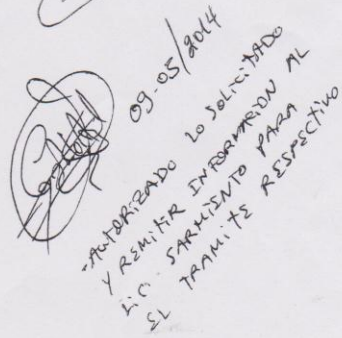 09-05/2014
-AUTORIZADO LO SOLICITADO
Y REMITIR INFORMACION AL
LIC. SARMIENTO PARA
EL TRAMITE RESPECTIVO